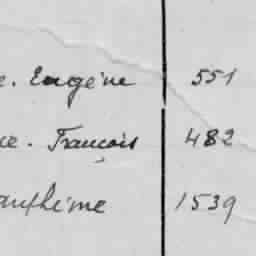 e. Eugène 551
ce. François 482
anthime 1539